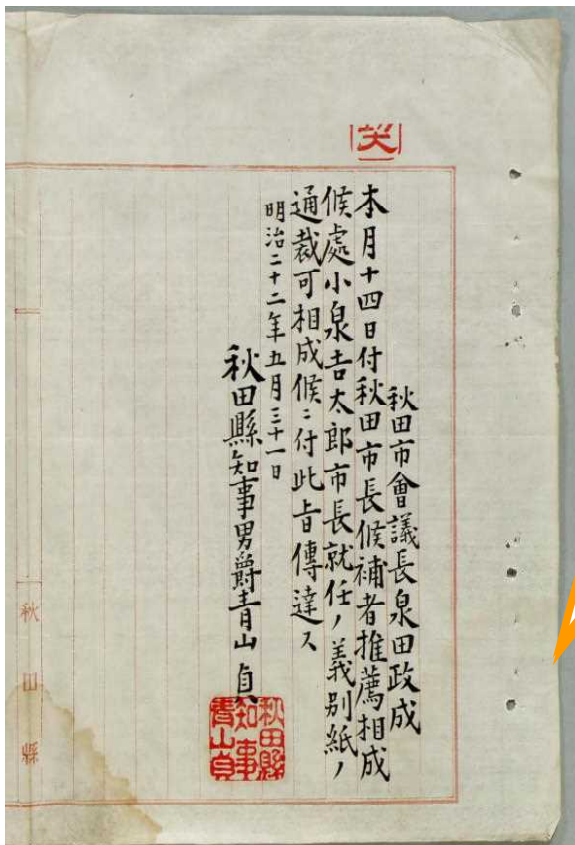 秋田市會議長泉田政成
本月十四日付秋田市長候補者推薦相成
候處小泉吉太郎市長就任ノ義別紙ノ
通裁可相成候ニ付此旨傳達ス
明治二十二年五月三十一日
秋田縣知事男爵青山貞
秋田縣
知事
青山貞
秋田縣